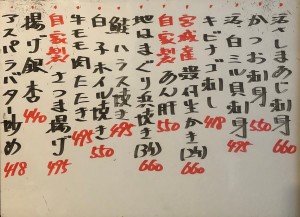 活しまあじ刺身 660
かつお刺身 550
活白ミル貝刺身 495
キビナゴ刺し 418
宮城産 殻付生かき(2ケ) 660
自家製 あん肝 550
地はまぐり浜焼き(3ケ) 660
鮭ハラス焼き 495
白子ホイル焼き 550
牛モモ肉たたき 495
自家製 さつま揚げ 495
揚げ銀杏 440
アスパラバター炒め 418